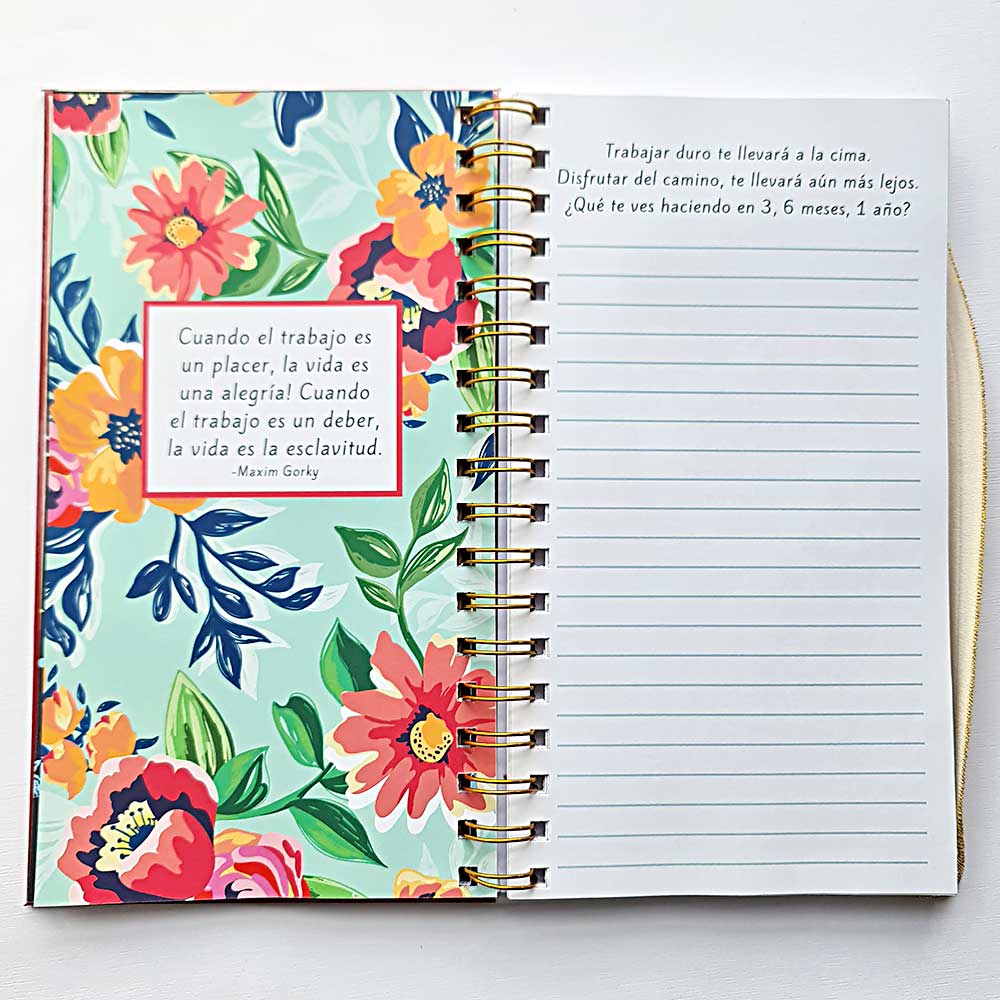 Cuando el trabajo es
un placer, la vida es
una alegría! Cuando
el trabajo es un deber,
la vida es la esclavitud.
-Maxim Gorky
Trabajar duro te llevará a la cima.
Disfrutar del camino, te llevará aún más lejos.
¿Qué te ves haciendo en 3, 6 meses, 1 año?